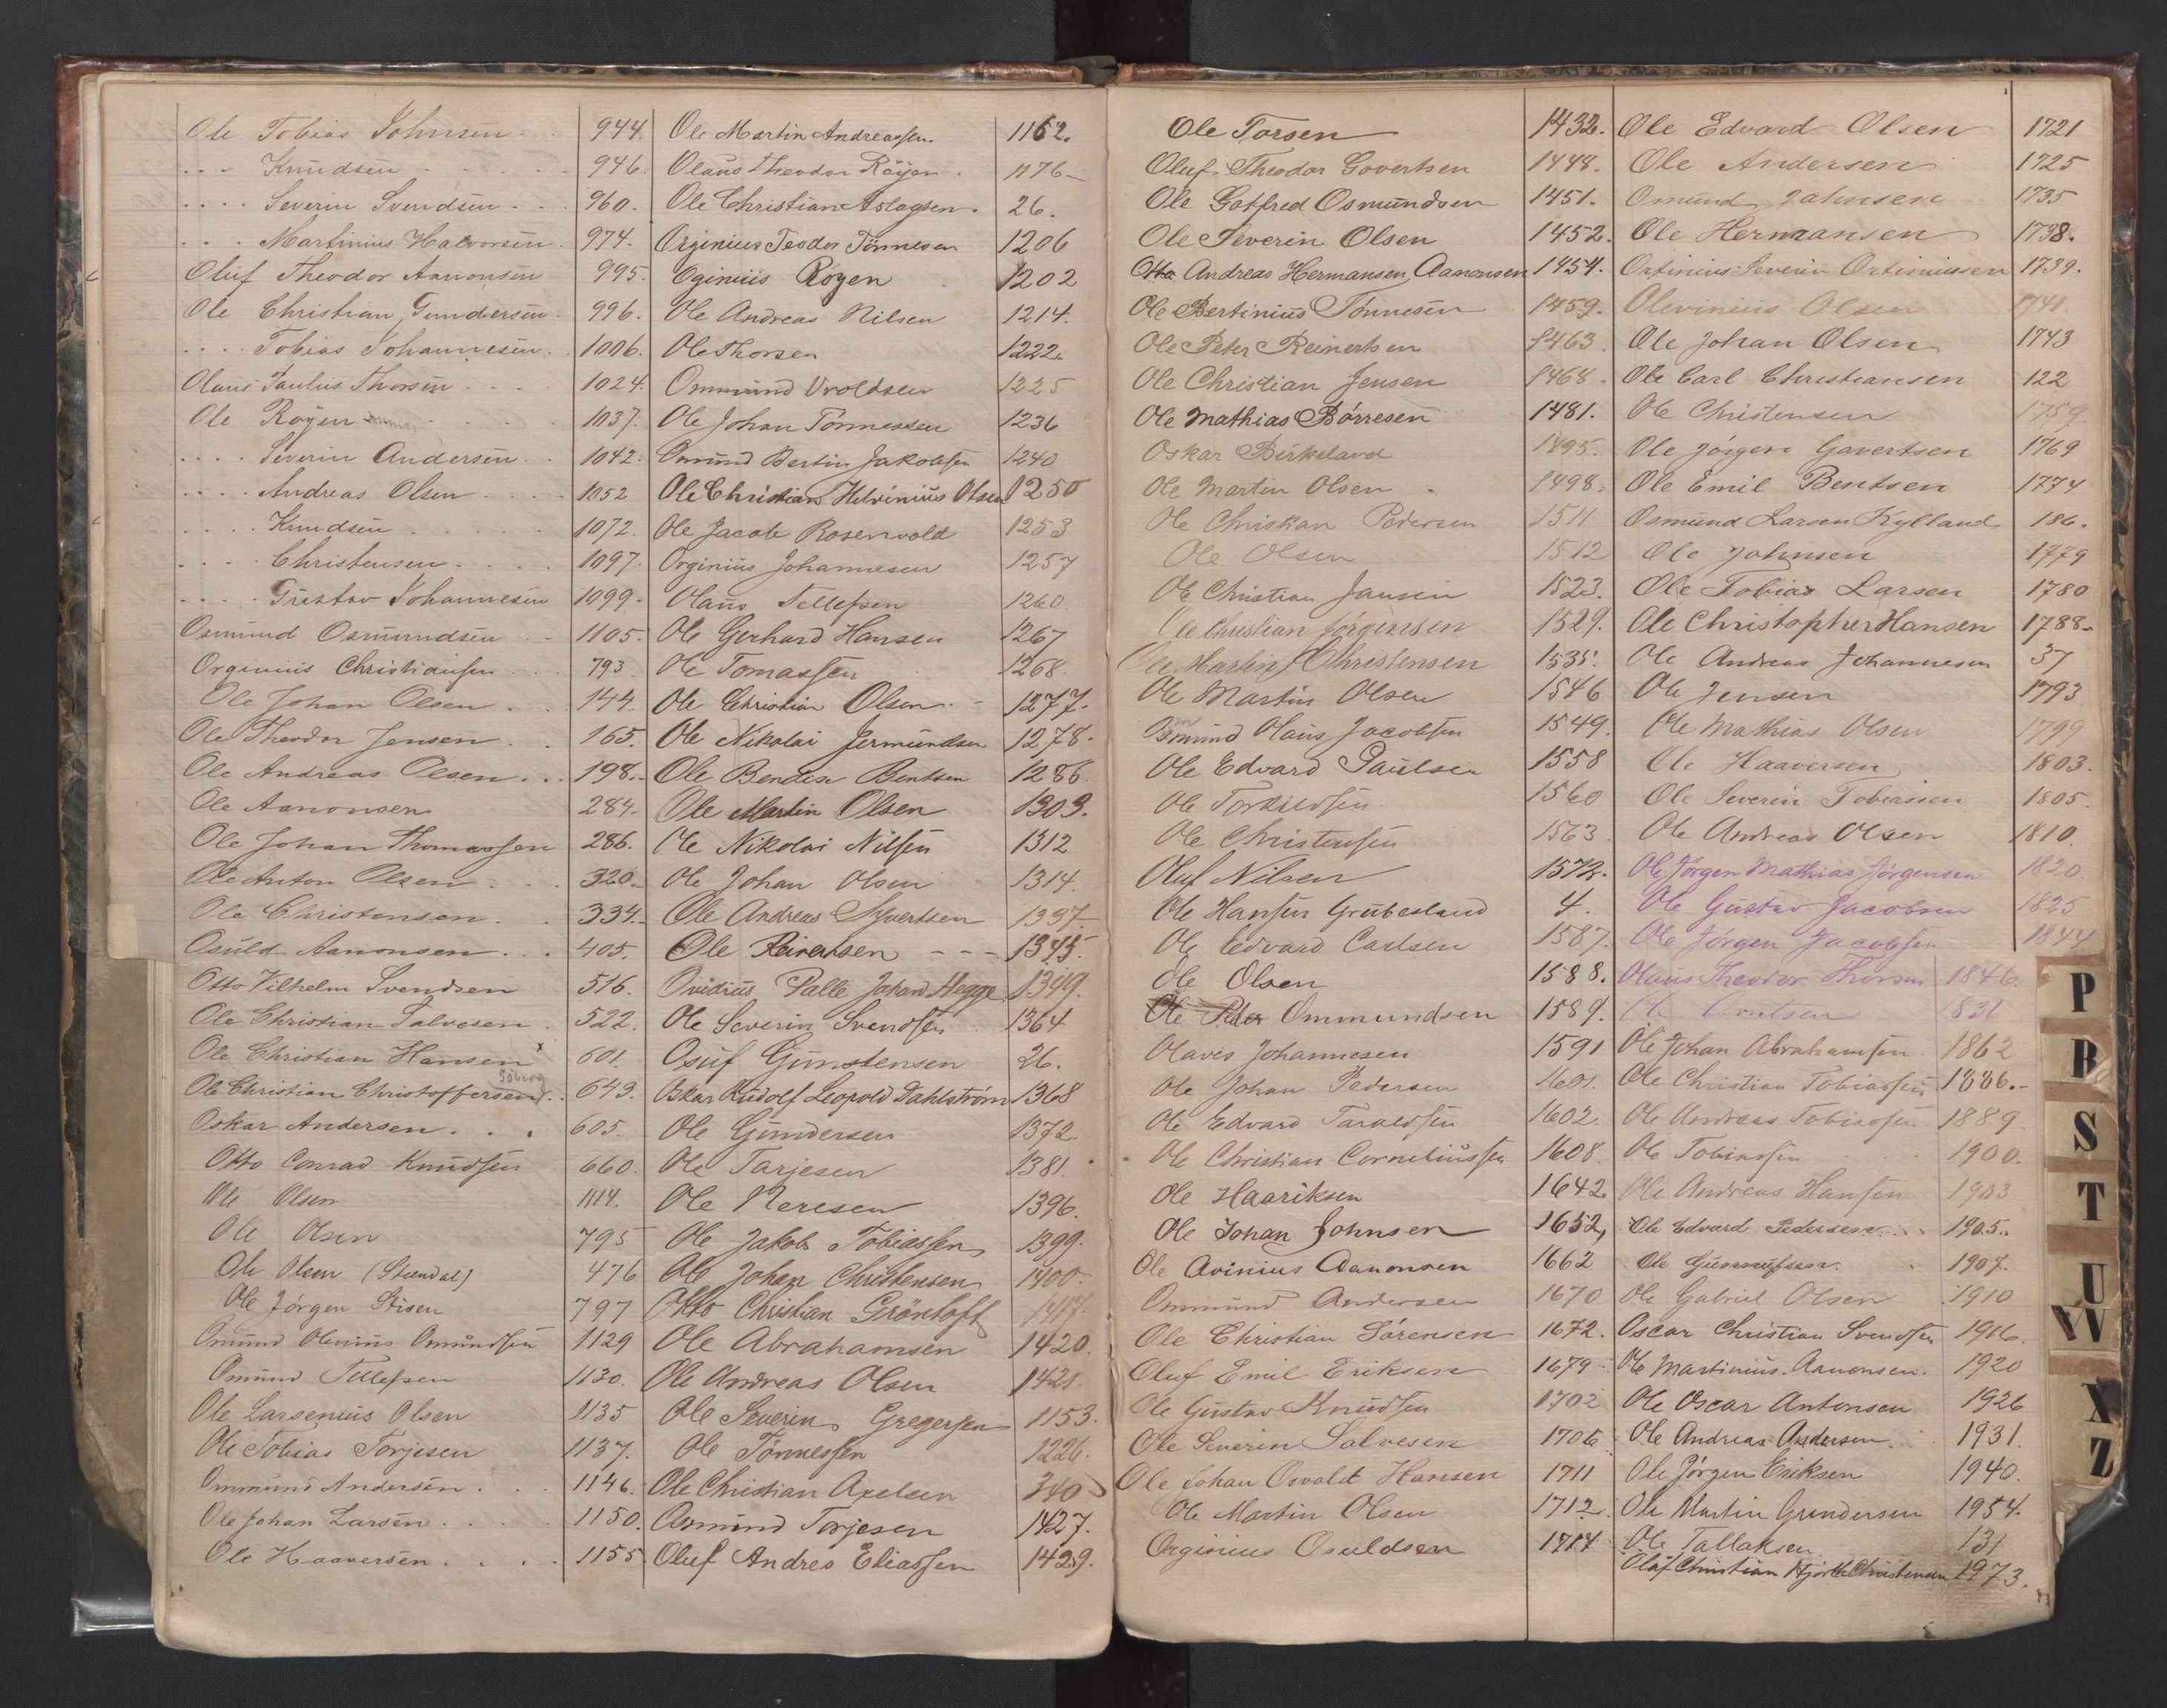 Ole Tobias Johnsen 944.
Knudsen 946.
Severin Svendsen 960.
Martinius Halvorsen 974.
Oluf Theodor Aanonsen 995.
Ole Christian Gundersen 996.
Tobias Johannesen 1006.
Olaus Paulus Thorsen 1024.
Ole Röyen 1037.
Severin Andersen 1042.
Andreas Olsen 1052
Knudsen 1072.
Christensen 1097.
Gustav Johannesen 1099.
Osmund Osmundsen 1105.
Orginius Christiansen 793
Ole Johan Olsen 144.
Ole Theodor Jensen 165.
Ole Andreas Olsen 198.
Ole Aanonsen 284.
Ole Johan Thomassen 286.
Ole Anton Olsen 320.
Ole Christensen 334.
Osuld Aanonsen 405.
Otto Vilhelm Svendsen 516.
Ole Christian Salvesen 522.
Ole Christian Hansen x 601.
Ole Christian Christoffersen 643.
Oskar Andersen 605.
Otto Conrad Knudsen 660.
Ole Olsen 1114.
Ole Olsen 795
Ole Olsen (Stendal) 476
Ole Jörgen Stisen 797
Omund Olenius Omundsen 1129
Omund Tellefsen 1130.
Ole Larsenius Olsen 1135
Ole Tobias Torjesen 1137.
Ommund Andersen 1146.
Ole Johan Larsen 1150.
Ole Haaversen 1155
Ole Martin Andreassen 1162.
Olaus Theodor Röyen 1176
Ole Christian Aslagsen 26.
Orginius Teodor Tönnesen 1206
Oginius Royen 1202
Ole Andreas Nilsen 1214.
Ole Thorsen 1222.
Ommund Uvoldsen 1225
Ole Johan Tönnessen 1236
Omund Bertin Jakobsen 1240
Ole Christian Helvinius Olsen 1250
Ole Jacob Rosenvold 1253
Orginius Johannesen 1257
Olaus Tellefsen 1260
Ole Gerhard Hansen 1267
Ole Tomassen 1268.
Ole Christian Olsen 1277.
Ole Nikolai Jermundsen 1278.
Ole Bendix Bentsen 1286.
Ole Martin Olsen 1303.
Ole Nikolai Nilsen 1312
Ole Johan Olsen 1314.
Ole Andreas Syvertsen 1337
Ole Reiersen 1345.
Ovidius Palle Johan Hegge 1349.
Ole Severin Svendsen 1364
Osuf Gunstensen 26.
Oskar Rudolf Leopold Dahlström 1368
Ole Gundersen 1372.
Ole Tarjesen 1381.
Ole Neresen 1396.
Ole Jakob Tobiassen 1399.
Ole Johan Christensen 1400.
Otto Christian Gröntoft 1417.
Ole Abrahamsen 1420.
Ole Andreas Olsen 1421.
Ole Severin Gregersen 1153.
Ole Tönnessen 1226.
Ole Christian Axelsen 340
Asmund Torjesen 1427.
Oluf Andres Eliassen 1429.
Ole Torsen 1432.
Oluf Theodor Govertsen 1448.
Ole Gotfred Osmundsen 1451.
Ole Severin Olsen 1452.
Otto Andreas Hermansen Aanonsen 1454.
Ole Bertinius Tönnesen 1459.
Ole Peter Reinertsen 1463
Ole Christian Jensen 1468.
Ole Mathias Börresen 1481.
Oskar Birkeland 1495.
Ole Martin Olsen 1498.
Ole Christian Pedersen 1511
Ole Olsen 1512
Ole Christian Jansen 1523.
Ole Christian Jörgensen 1529.
Ole Martin Christensen 1535.
Ole Martin Olsen 1546
Omund Olaus Jacobsen 1549.
Ole Edvard Paulsen 1558
Ole Torkildsen 1560
Ole Christensen 1563
Oluf Nilsen 1572.
Ole Hansen Grubesland 4.
Ole Edvard Carlsen 1587.
Ole Olsen 1588.
Ole Peder Ommundsen 1589.
Olavis Johannesen 1591
Ole Johan Pedersen 1601.
Ole Edvard Taraldsen 1602.
Ole Christian Corneliussen 1608.
Ole Haariksen 1642.
Ole Johan Johnsen 1652,
Ole Avinius Aanonsen 1662
Ommund Andersen 1670
Ole Christian Sörensen 1672.
Oluf Emil Eriksen 1679
Ole Gustav Knudsen 1702
Ole Severin Salvesen 1706
Ole Johan Osvald Hansen 1711
Ole Martin Olsen 1712.
Orginius Osuldsen 1714
Ole Edvard Olsen 1721
Ole Andersen 1725
Omund Jahnsen 1735
Ole Hermansen 1738.
Ortinius Severin Ortiniussen 1739.
Olevinius Olsen 1741.
Ole Johan Olsen 1743
Ole Carl Christiansen 122
Ole Christensen 1759.
Ole Jörgen Gavertsen 1769
Ole Emil Bentsen 1774
Osmund Larsen Kylland 186.
Ole Johnsen 1779
Ole Tobias Larsen 1780
Ole Christopher Hansen 1788.
Ole Andreas Johannesen 37
Ole Jensen 1793
Ole Mathias Olsen 1799
Ole Haaversen 1803.
Ole Severin Tobiassen 1805.
Ole Andreas Olsen 1810.
Ole Jörgen Mathias Jörgensen 1820
Ole Gustav Jacobsen 1825
Ole Jörgen Jacobsen 1844
Olaus Theodor Thorsen 1846.
Ole Arntsen 1831
Ole Johan Abrahamsen 1862
Ole Christian Tobiassen 1886.
Ole Andreas Tobiassen 1889.
Ole Tobiassen 1900.
Ole Andreas Hansen 1903
Ole Edvard Pedersen 1905.
Ole Gunnufsen 1907.
Ole Gabriel Olsen 1910
Oscar Christian Svendsen 1916.
Ole Martinius Aanonsen 1920
Ole Oscar Antonsen 1926
Ole Andreas Andersen 1931.
Ole Jörgen Eriksen 1940.
Ole Martin Gundersen 1954.
Ole Tallaksen 131
Olaf Christian Hjorth Christensen 1973.
P
R
S
T
U
W
X
Z